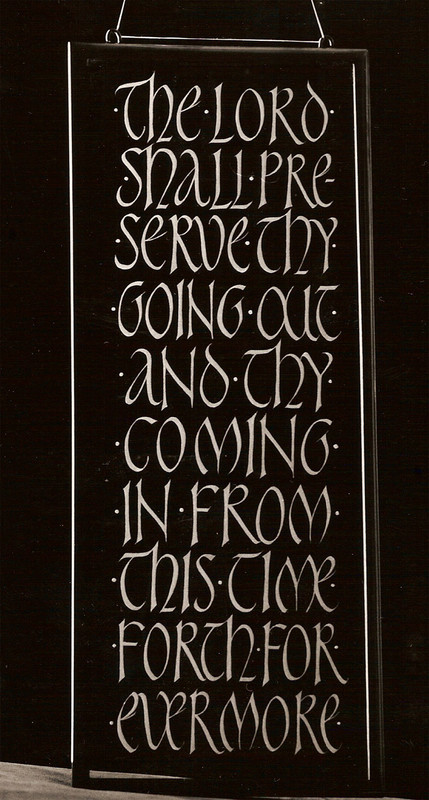 ·The·LORD·
ShALL·PRE-
·SERVE·ThY·
·GOING·OUT
·AND·ThY·
·COMING·
·IN·FROM·
·ThIS·TIME·
·FORTh·FOR·
·EVERMORE·